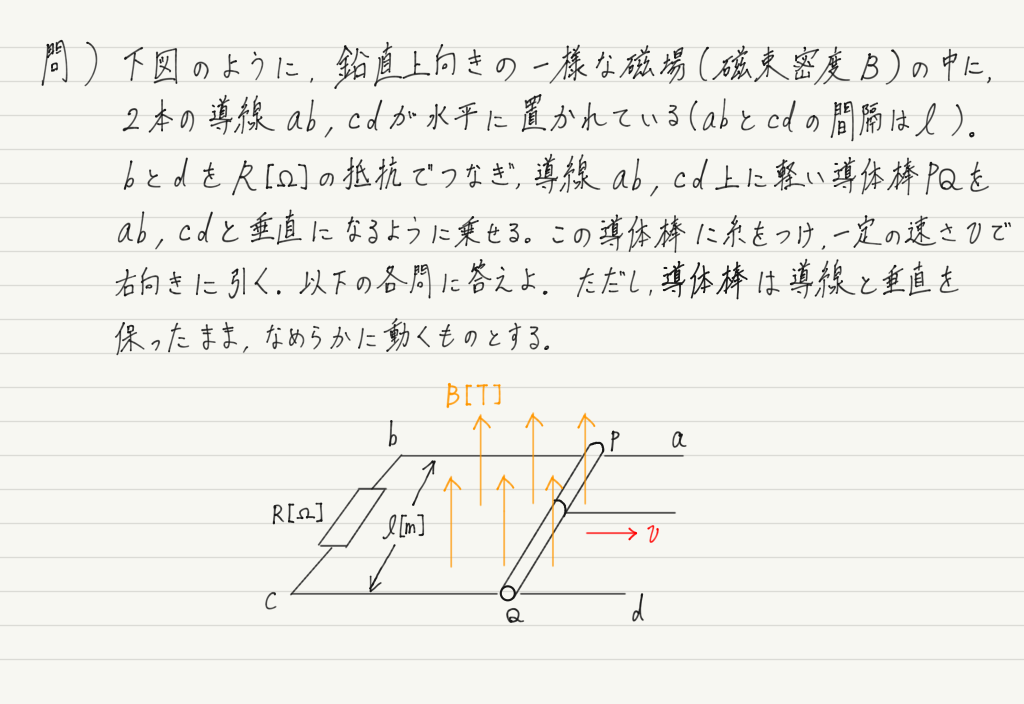 問) 下図のように, 鉛直上向きの一様な磁場(磁束密度B)の中に,
2本の導線ab, cdが水平に置かれている(abとcdの間隔はl).
bとdをR[Ω]の抵抗でつなぎ, 導線ab, cd上に軽い導体棒PQを
ab, cdと垂直になるように乗せる。この導体棒に糸をつけ, 一定の速さvで
右向きに引く. 以下の各問に答えよ. ただし, 導体棒は導線と垂直を
保ったまま, なめらかに動くものとする.
B[T]
b
P
a
R[Ω]
l[m]
v
c
Q
d